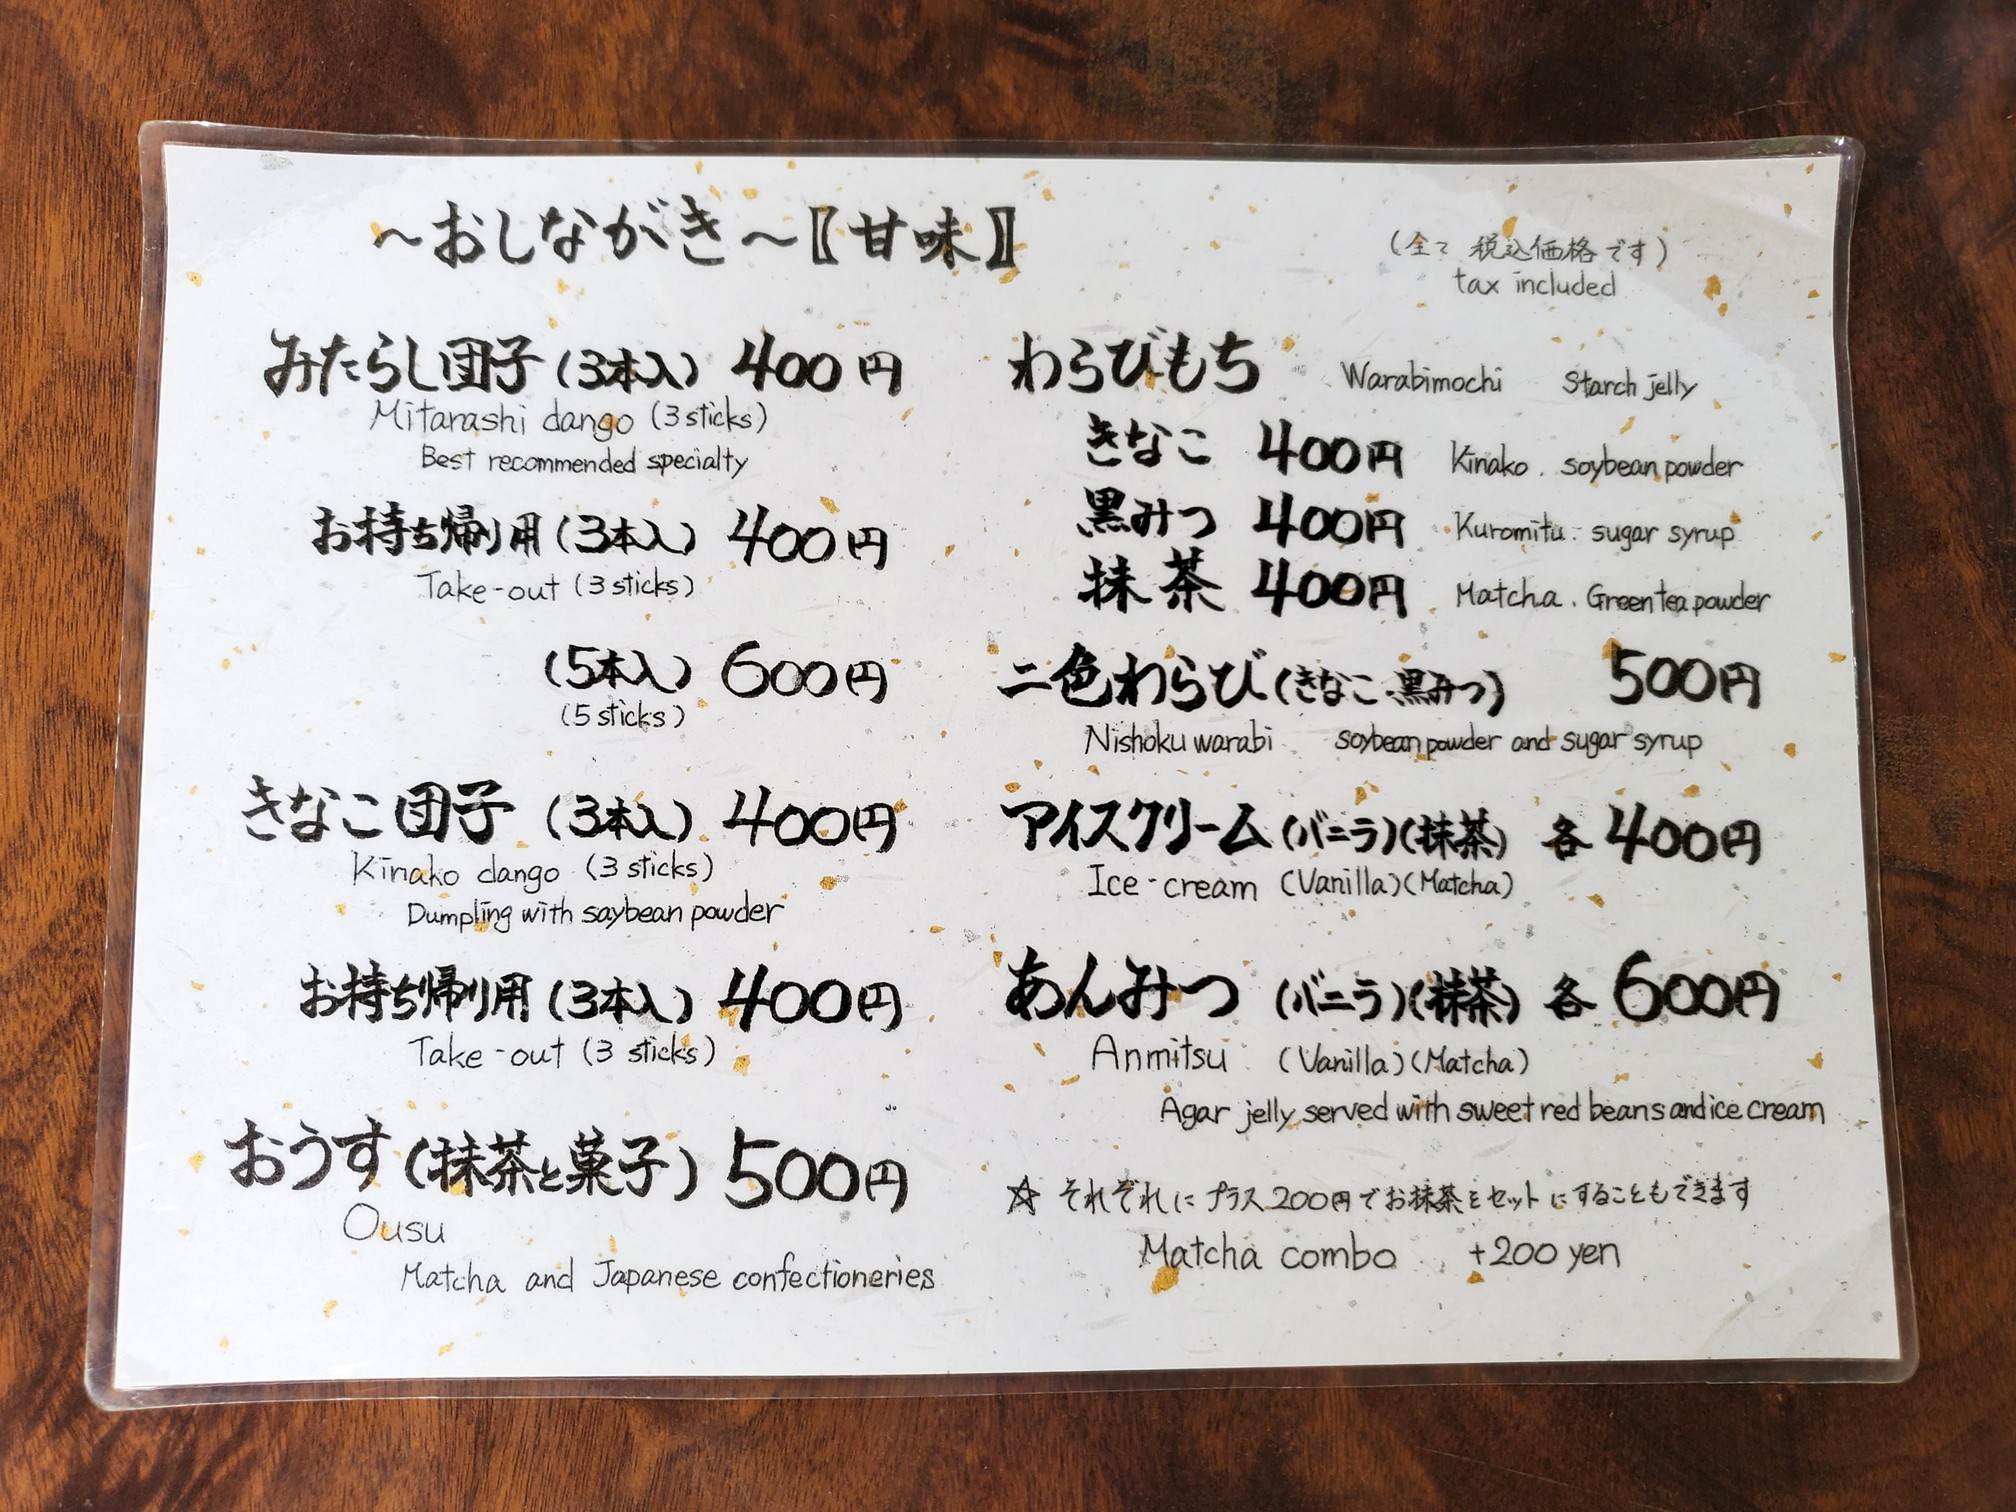 ～おしながき～〖甘味〗
(全て税込価格です)
tax included
みたらし団子(3本入) 400円
Mitarashi dango (3 sticks)
Best recommended specialty
お持ち帰り用(3本入) 400円
Take-out (3 sticks)
(5本入) 600円
(5 sticks)
きなこ団子 (3本入) 400円
Kinako dango (3 sticks)
Dumpling with saybean powder
お持ち帰り用(3本入) 400円
Take-out (3 sticks)
おうす(抹茶と菓子) 500円
Ousu
Matcha and Japanese confectioneries
わらびもち Warabimochi Starch jelly
きなこ 400円 Kinako . soybean powder
黒みつ 400円 Kuromitu . sugar syrup
抹茶 400円 Matcha . Green tea powder
二色わらび(きなこ、黒みつ) 500円
Nishoku warabi soybean powder and sugar syrup
アイスクリーム(バニラ)(抹茶) 各400円
Ice-cream (Vanilla)(Matcha)
あんみつ (バニラ)(抹茶) 各600円
Anmitsu (Vanilla)(Matcha)
Agar jelly served with sweet red beans and ice cream
☆ それぞれにプラス200円でお抹茶をセットにすることもできます
Matcha combo +200 yen